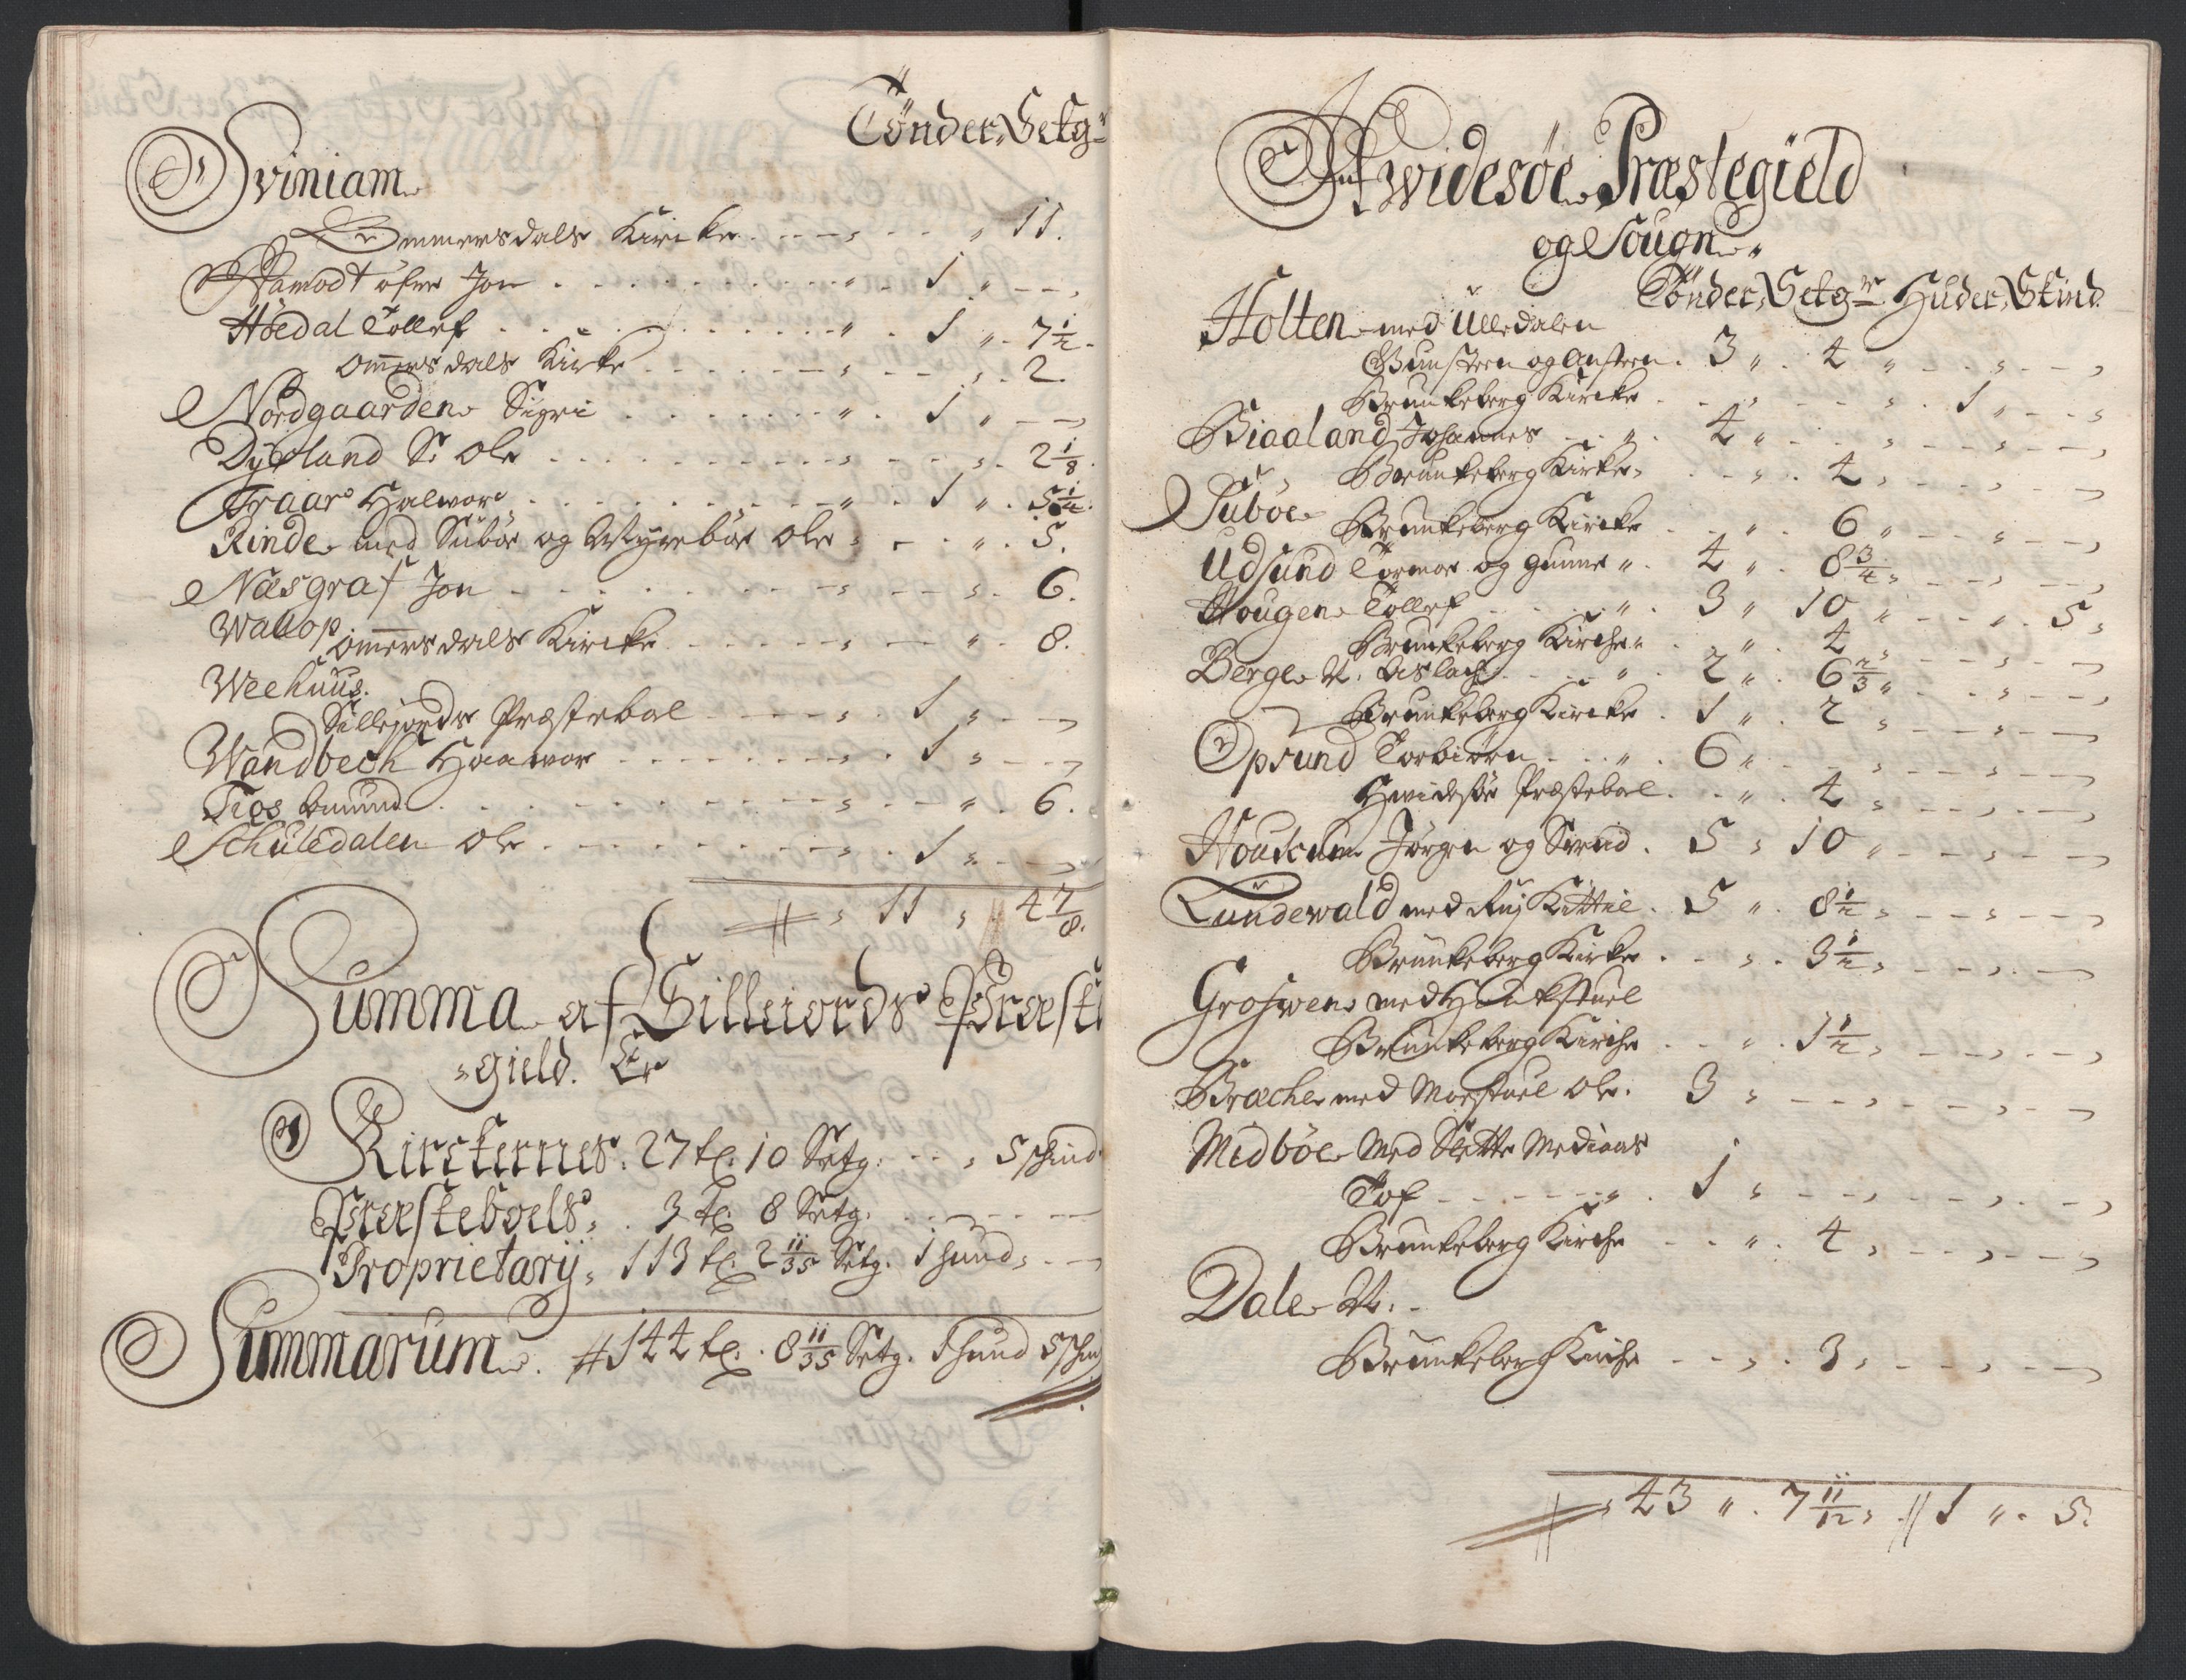 Tønder, Setgr
Sviniam
Ommersdals Kircke . . . . „ 11.
Aamodt øfre Jon . . . . „ . 1 „ – –
Høedal Tollef . . . . „ . 1 „ . 7 1/2.
Om̅ersdals Kircke . . . . 2.
Nordgaarden Sigri . . . . „ . 1 „ – –
Dyrland S: Ole . . . . 2 1/8.
Traar Halvor . . . . „ . 1 „ . 5 1/2.
Rinde med Subøe og Myrebøe Ole . „ . 5.
Næsgraf Jon . . . . 6.
Wallop
Om̅ersdals Kircke . . . . „ . 8.
Weehuus.
Sillejords Præstebol . . . . 1 „ – –
Wandbech Haavor . . . . 1 „ – –
Tios Omund . . . . „ . 6.
Schuledalen Ole . . . . 1 „ – –
# „ 11 „ 4 7/8.
Summa af Silleiords Præste
„gield. Er
Kirckernes. 27 tl. 10 Setg. . . „ 5 schind
Præsteboels, . 3 tl. 8 Setg. . . .
Proprietarij, 113 tl. 2 11/35 Setg. 1 huud, . –
Summarum. # 144 tl. 8 11/35 Setg. 1 huud 5 schin
Hwidesøe Præstegield
og Sougn „
Tønder, Setgr Huder, Skind
Holten med Ulledalen
Gunsteen og Ansteen . 3 „ . 4 „
Brunkeberg Kircke . . . . 1 „
Biaaland Johannes . . „ . 4 „
Brunkeberg Kircke, . . . 4 „
Subøe
Brunkeberg Kircke . . „ . 6 „
Udsund Tormoe og Gunne „ . 4 „ . 8 3/4 „
Hougen Tollef . . . „ . 3 „ 10 „ . . „ . 5 „
Brunkeberg Kirche „ . „ . 4 „
Berge N. Aslach . . „ . 2 „ . 6 2/3 „
Brunkeberg Kircke . 1 „ . 2 „
Opsund Torbiørn . . „ . 6 „
Hvidesøe Præstebol . . „ . 4 „
Houkum Jørgen og Svend . 5 „ 10 „
Lundewald med Ruj Kittil . 5 „ . 8 1/2 „
Brunkeberg Kircke . . „ . 3 1/2 „
Groswen med
Brunkeberg Kirche . . „ . 1 1/2 „
Bræche med Moestuel Ole . 3 „
Midbøe Med Slette Mediaas
Tof . . . . „ . 1 „
Brunkeberg Kirche . . „ . 4 „
Dale N. .
Brunkeberg Kirche . . „ . 3 „
# „ 43 „ . 7 11/12 „ # 1 „ . 5.